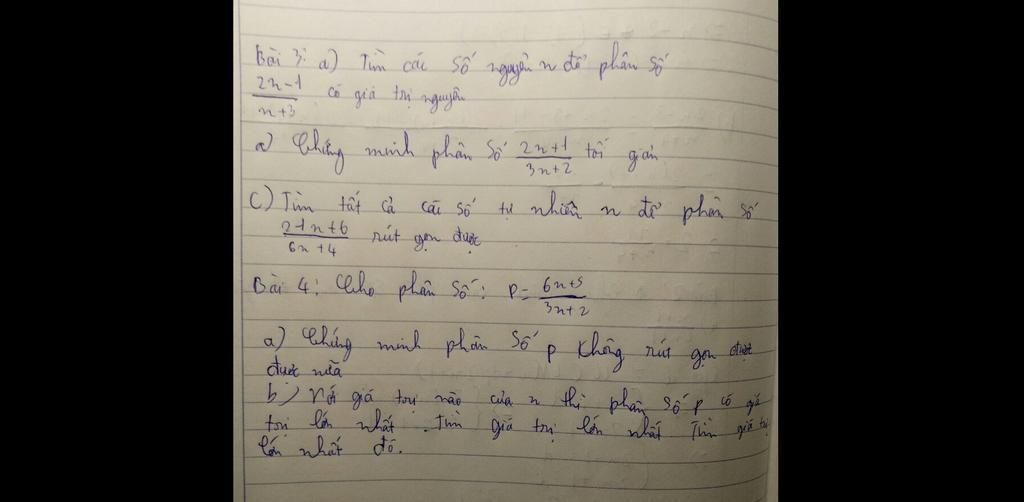 Bài 3: a) Tìm các số nguyên n để phân số
2n-1/n+3 có giá trị nguyên
a) Chứng minh phân số 2n+1/3n+2 tối giản
C) Tìm tất cả các số tự nhiên n để phân số
21n+6/6n+4 rút gọn được
Bài 4: Cho phân số: P= 6n+5/3n+2
a) Chứng minh phân số p không rút gọn được
được nữa
b) Với giá trị nào của n thì phân số p có giá
trị lớn nhất. Tìm giá trị lớn nhất Tìm giá trị
lớn nhất đó.